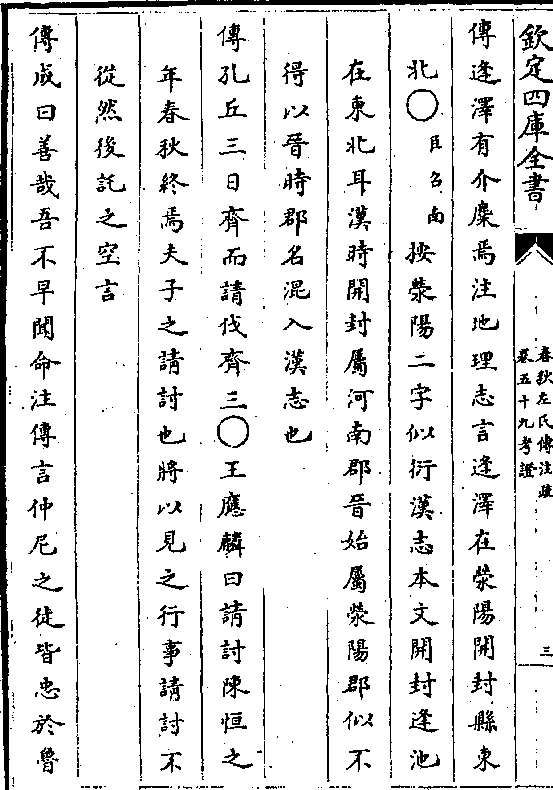 欽定四庫全書
春秋左氏傳注疏
卷五十九考證
三
傳逢澤有介麇焉注地理志言逢澤在滎陽開封縣東
北○臣召南按滎陽二字似衍漢志本文開封逢池
在東北耳漢時開封屬河南郡晉始屬滎陽郡似不
得以晉時郡名混入漢志也
傳孔丘三日齊而請伐齊三○王應麟曰請討陳恒之
年春秋終焉夫子之請討也將以見之行事請討不
從然後託之空言
傳成曰善哉吾不早聞命注傳言仲尼之徒皆忠於魯